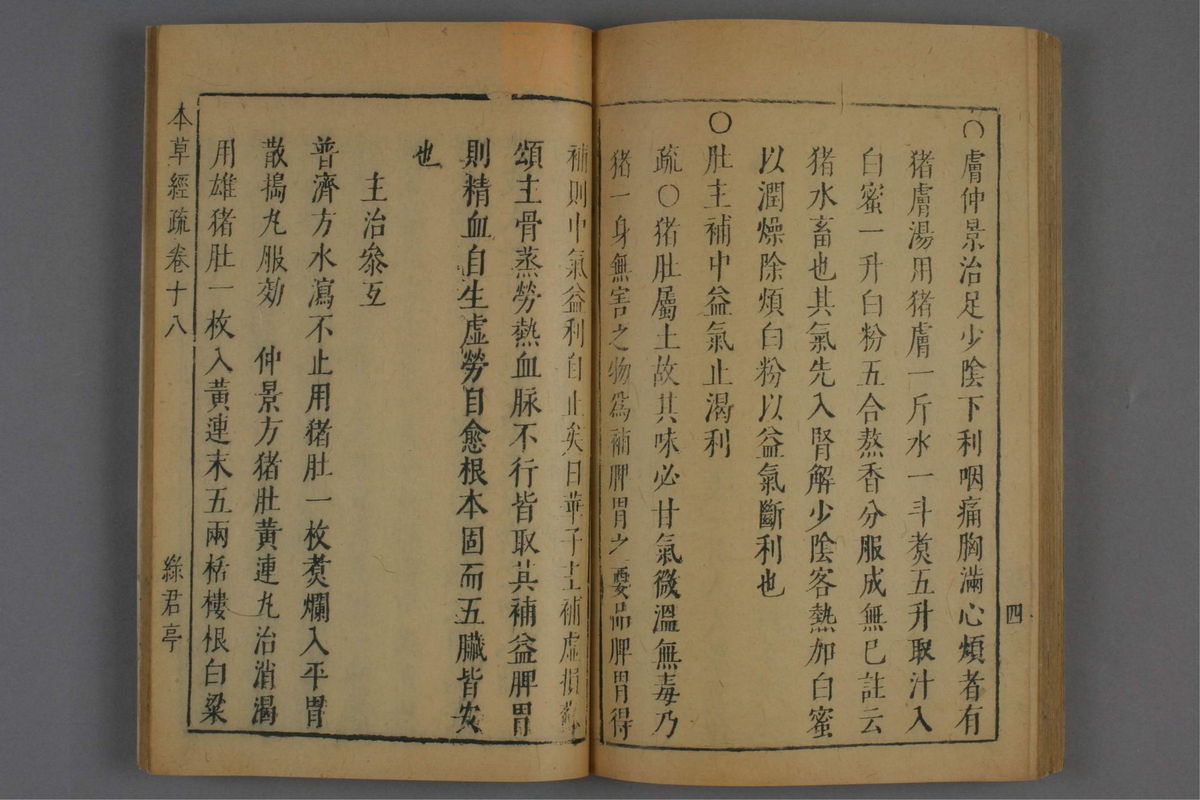 四
○膚仲景治足少陰下利咽痛胸滿心煩者有
猪膚湯用猪膚一斤水一斗煑五升取汁入
白蜜一升白粉五合熬香分服成無已註云
猪水畜也其氣先入腎解少陰客熱加白蜜
以潤燥除煩白粉以益氣斷利也
○肚主補中益氣止渴利
疏○猪肚屬土故其味必甘氣微溫無毒乃
猪一身無害之物為補脾胃之要品脾胃得
補則中氣益利自止矣日華子主補虛損蘇
頌主骨蒸勞熱血脉不行皆取其補益脾胃
則精血自生虛勞自愈根本固而五臟皆安
也
主治參互
普濟方水瀉不止用猪肚一枚煑爛入平胃
散搗丸服効　仲景方猪肚黃連丸治消渴
用雄猪肚一枚入黃連末五兩栝樓根白粱
本草經疏卷十八　綠君亭